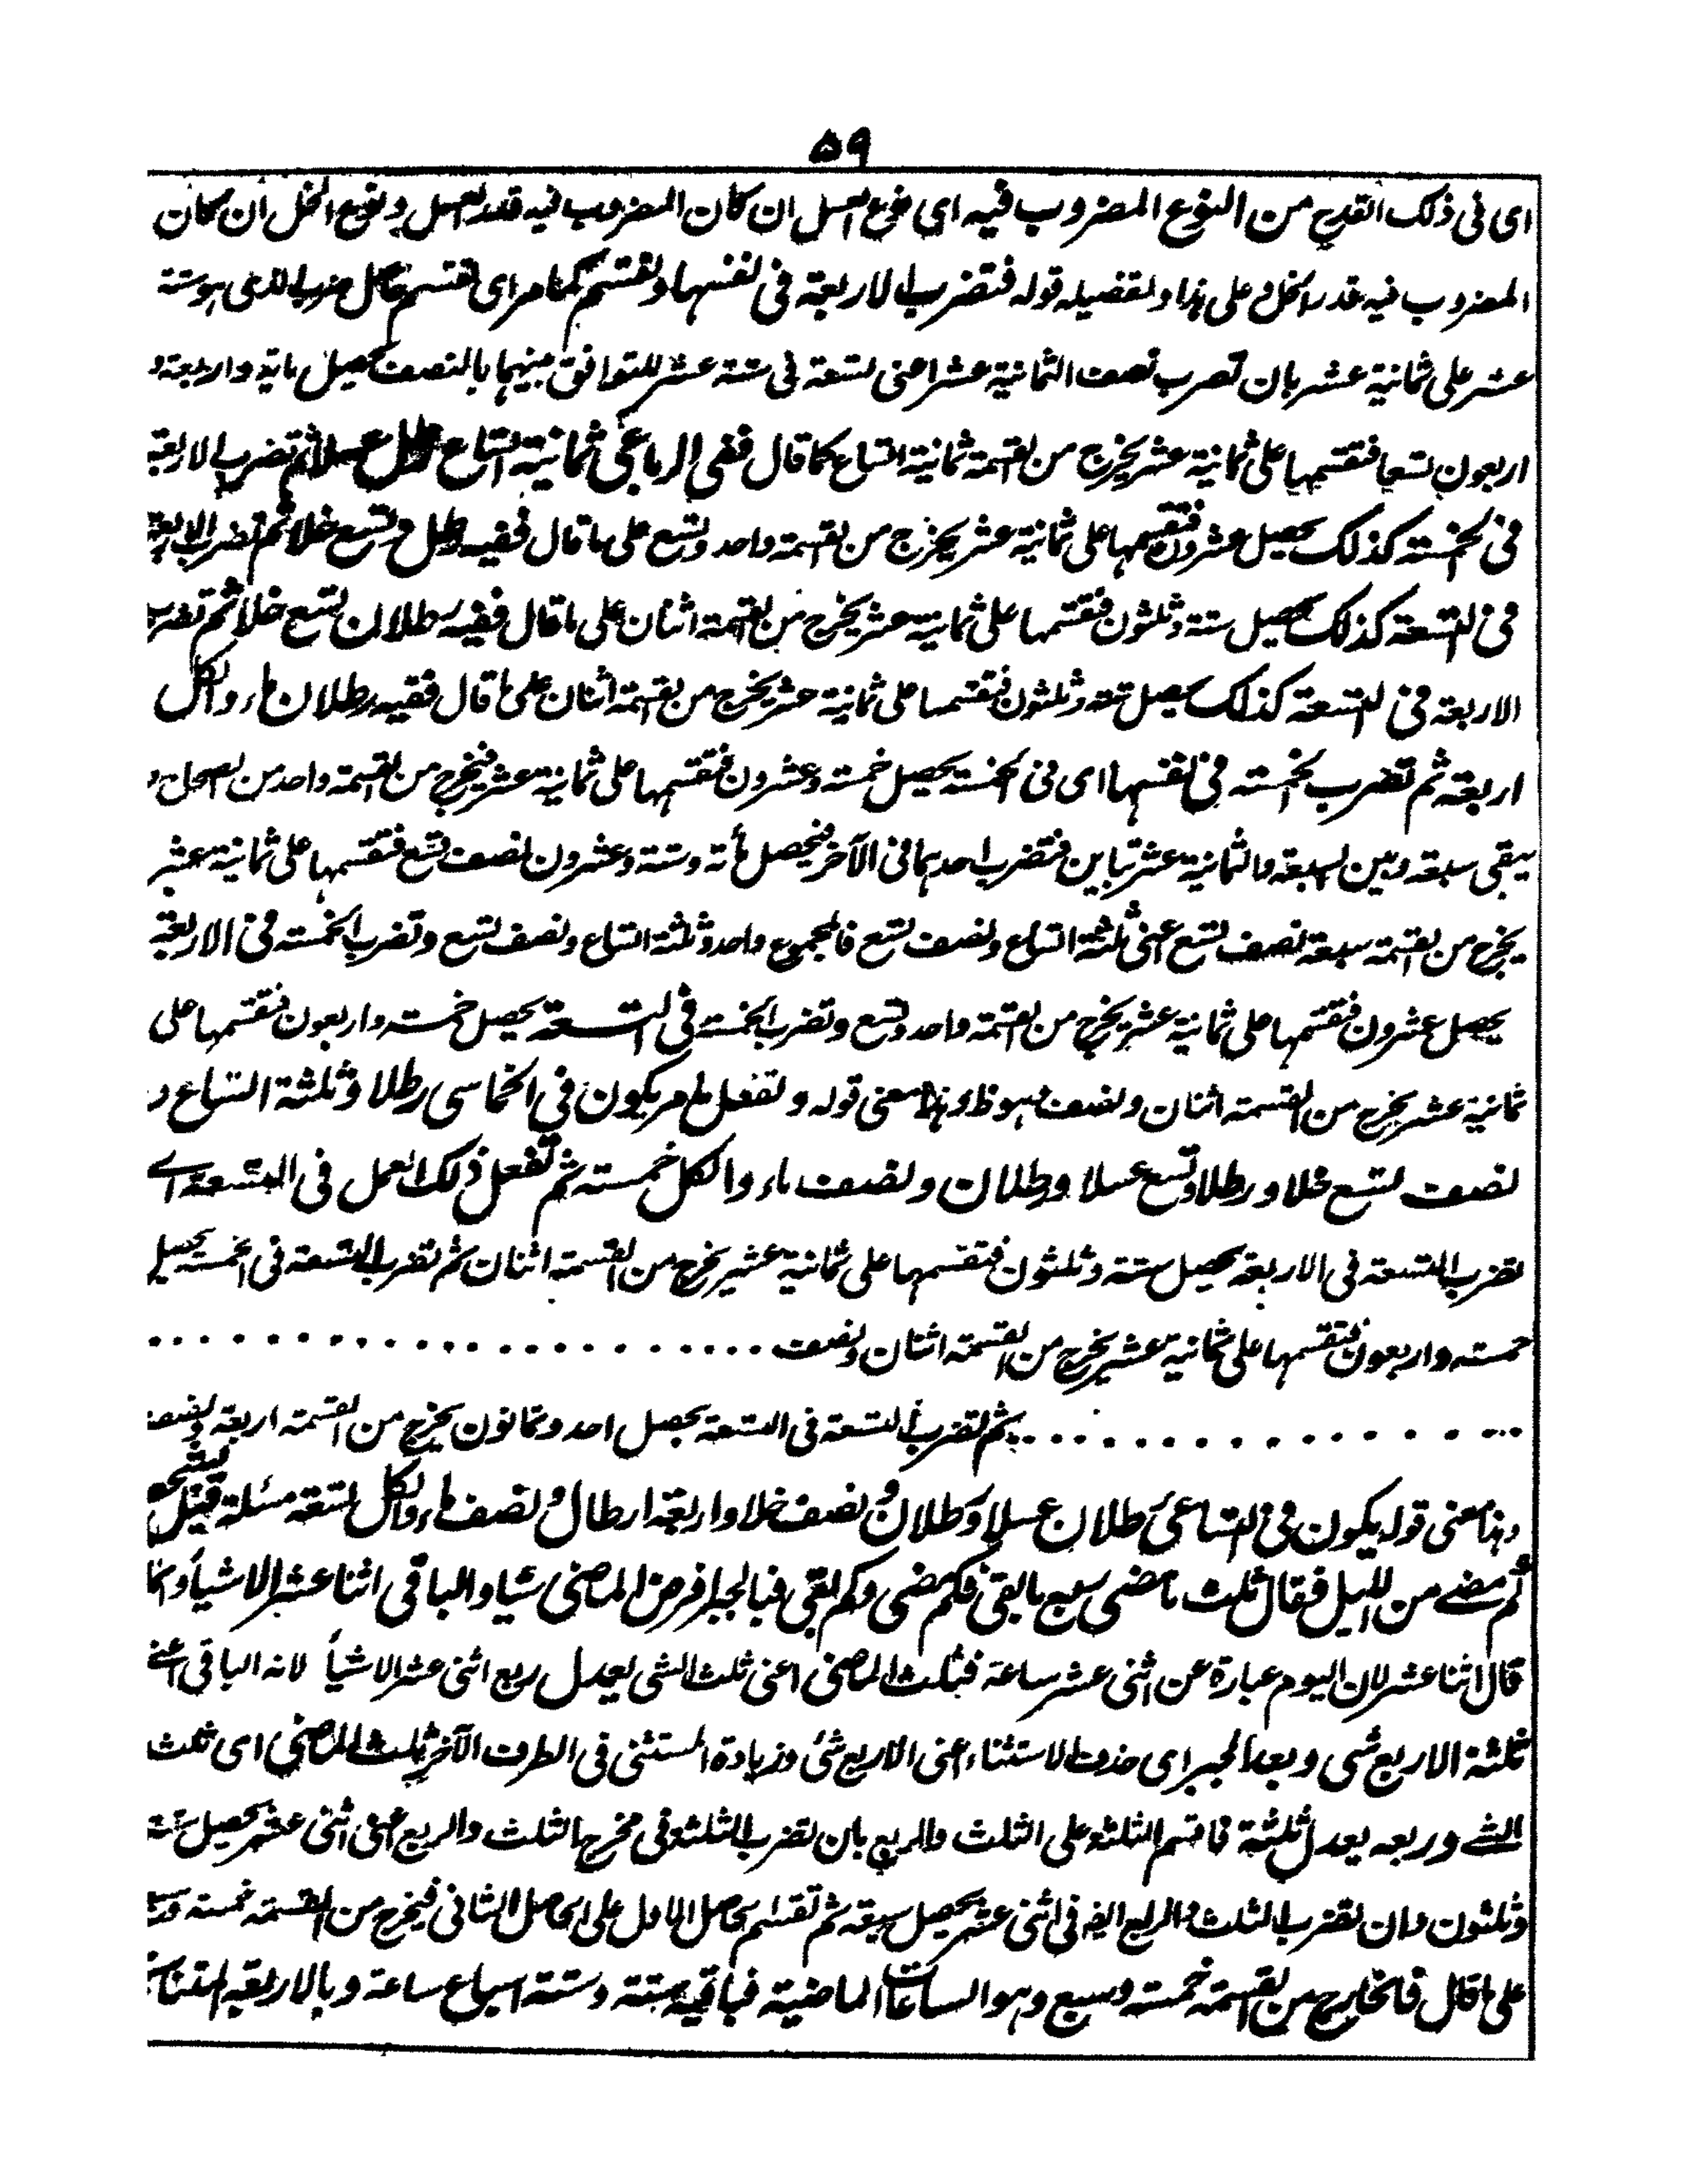 ٥٩
اى فى ذلك القدح من النوع المضروب فيه اى نوع العسل ان كان المضروب فيه قدر العسل ونوع الخل ان كان
المضروب فيه قدر الخل وعلى هذا وتفصيله قوله فتضرب الاربعة فى نفسها وتقسم كما مر اى تقسم حاصل ضرب الذى هو ستة
عشر على ثمانية عشر بان تضرب نصف الثمانية عشر اعنى تسعة فى ستة عشر للتوافق بينهما بالنصف يحصل ماية واربعة و
اربعون تسعا فتقسمها على ثمانية عشر يخرج من القسمة ثمانية اتساع كما قال ففى الرباعى ثمانية اتساع رطل عسلا ثم تضرب الاربعة
فى الخمسة كذلك يحصل عشرون فتقسمها على ثمانية عشر يخرج من القسمة واحد وتسع على ما قال ففيه رطل وتسع خلا ثم تضرب الاربعة
فى التسعة كذلك يحصل ستة وثلثون فتقسمها على ثمانية عشر يخرج من القسمة اثنان على ما قال ففيه رطلان تسع خلا ثم تضرب
الاربعة فى التسعة كذلك يحصل ستة وثلثون فتقسمها على ثمانية عشر يخرج من القسمة اثنان على ما قال ففيه رطلان ماء والكل
اربعة ثم تضرب الخمسة فى نفسها اى فى الخمسة يحصل خمسة وعشرون فتقسمها على ثمانية عشر فيخرج من القسمة واحد من الصحاح و
يبقى سبعة وبين السبعة والثمانية عشر تباين فتضرب احدهما فى الآخر فيحصل مأة وستة وعشرون نصف تسع فتقسمها على ثمانية عشر
يخرج من القسمة سبعة نصف تسع اعنى ثلثة اتساع ونصف تسع فالمجموع واحد وثلثة اتساع ونصف تسع وتضرب الخمسة فى الاربعة
يحصل عشرون فتقسمها على ثمانية عشر يخرج من القسمة واحد وتسع وتضرب الخمسة فى التسعة يحصل خمسة واربعون فتقسمها على
ثمانية عشر يخرج من القسمة اثنان ونصف وهذا معنى قوله وتفعل ما مر يكون فى الخماسى رطلا وثلثة اتساع و
نصف تسع خلا ورطلا وتسع عسلا ورطلان ونصف ماء والكل خمسة ثم تفعل ذلك العمل فى التسعة اے
تضرب التسعة فى الاربعة يحصل ستة وثلثون فتقسمها على ثمانية عشر يخرج من القسمة اثنان ثم تضرب التسعة فى الخمسة يحصل
خمسة واربعون فتقسمها على ثمانية عشر يخرج من القسمة اثنان ونصف . . . . . . . . . . . . . . . . . . . .
. . . . . . . . . . . . . . . . ثم تضرب التسعة فى التسعة يحصل احد وثمانون يخرج من القسمة اربعة ونصف
وهذا معنى قوله يكون فى التساعى رطلان عسلا ورطلان ونصف خلا واربعة ارطال ونصف ماء والكل تسعة مسئلة قيل لشخص
كم مضے من الليل فقال ثلث ما مضى ربع ما بقى فكم مضى وكم بقى فبالجبر افرض الماضى شيا والباقى اثنا عشر الا شيأ وانما
قال اثنا عشر لان اليوم عبارة عن اثنى عشر ساعة فثلث الماضى اعنى ثلث الشى يعدل ربع اثنى عشر الا شيأ لانه الباقى اعنے
ثلثة الا ربع شى وبعد الجبر اى حذف الاستثناء اعنى الا ربع شئ وزيادة المستثنى فى الطرف الآخر ثلث الماضى اى ثلث
الشے وربعه يعدل ثلثة فاقسم الثلثة على الثلث والربع بان تضرب الثلثة فى مخرج الثلث والربع اعنى اثنى عشر يحصل ستة
وثلثون وان تضرب الثلث والربع ايضا فى اثنى عشر يحصل سبعة ثم تقسم الحاصل الاول على الحاصل الثانى فيخرج من القسمة خمسة وسبع
على ما قال فالخارج من القسمة خمسة وسبع وهو الساعات الماضية فباقية ستة وستة اسباع ساعة وبالاربعة المتناسبة